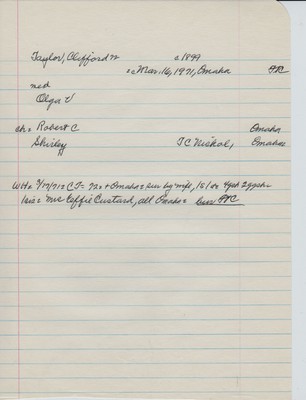 Taylor, Clifford W c1899
= Mar. 16, 1971, Omaha PC
md
Olga V
ch = Robert C Omaha
Shirley JC Niskol, Omaha
WH = 3/17/71 = CT = 72 + Omaha = sur by wife, 1s 1dr 4gch 2ggch
1sis = Mrs Effie Custard, all Omaha = bur PC